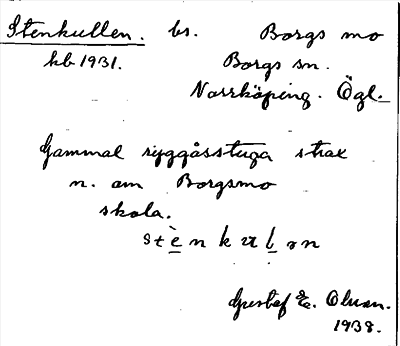 Stenkullen. bs. Borgs mo
kb 1931. Borgs sn.
Norrköping. Ögl.
Gammal ryggåsstuga strax
n. om Borgsmo
skola.
stènkulən
Gustaf E. Olsson.
1938.